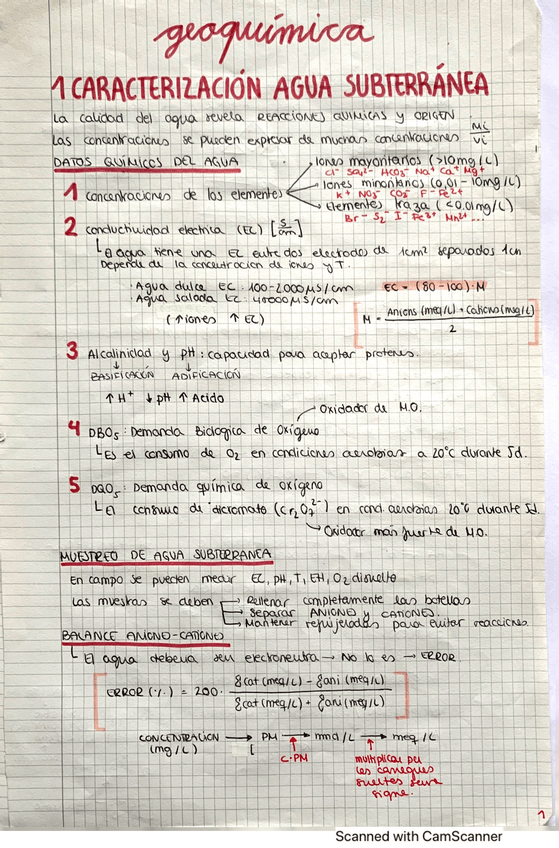 geoquímica
1 CARACTERIZACIÓN AGUA SUBTERRÁNEA
La calidad del agua revela REACCIONES QUIMICAS y ORIGEN
Las concentraciones se pueden expresar de muchas concentraciones Mi/Vi
DATOS QUIMICOS DEL AGUA
1 concentraciones de los elementos
Iones mayoritarios (>10mg/L)
Cl⁻ SO4²⁻ HCO3⁻ Na⁺ Ca⁺ Mg⁺
Iones minoritarios (0,01 - 10mg/L)
K⁺ NO3⁻ CO3⁻ F⁻ Fe²⁺
Elementos traza (<0.01mg/L)
Br⁻ S2⁻ I⁻ Fe³⁺ Mn²⁺ ...
2 conductividad eléctrica (EC) [S/cm]
El agua tiene una EC entre dos electrodos de 1cm² separados 1cm
Depende de la concentracion de iones y T.
· Agua dulce EC: 100-2000μS/cm
· Agua salada EC: 40000μS/cm
(↑iones ↑EC)
EC = (80-100)·M
M = Anions (meq/L) + Cations (meq/L) / 2
3 Alcalinidad y pH: capacidad para aceptar protones.
BASIFICACIÓN ADIFICACIÓN
↑H⁺ ↓pH ↑Acido
4 DBO5: Demanda Biologica de Oxígeno
Oxidador de M.O.
Es el consumo de O2 en condiciones aerobias a 20°C durante 5d.
5 DQO5: Demanda química de oxígeno
El consumo de dicromato (Cr2O7²⁻) en cond. aerobias 20°C durante 5d.
Oxidador más fuerte de M.O.
MUESTREO DE AGUA SUBTERRANEA
En campo se pueden medir EC, pH, T, EH, O2 disuelto
Las muestras se deben
Rellenar completamente las botellas
Separar ANIONES y CATIONES.
Mantener refrijeradas para evitar reacciones.
BALANCE ANIONO-CATIONES
El agua deberia ser electroneutra → No lo es → ERROR.
ERROR (%) = 200· ξcat (meq/L) - ξani (meq/L) / ξcat (meq/L) + ξani (meq/L)
CONCENTRACION → PM → mmol/L → meq/L
(mg/L)
C·PM
multiplicar por
las cargas
sueltas
signo.
1
Scanned with CamScanner